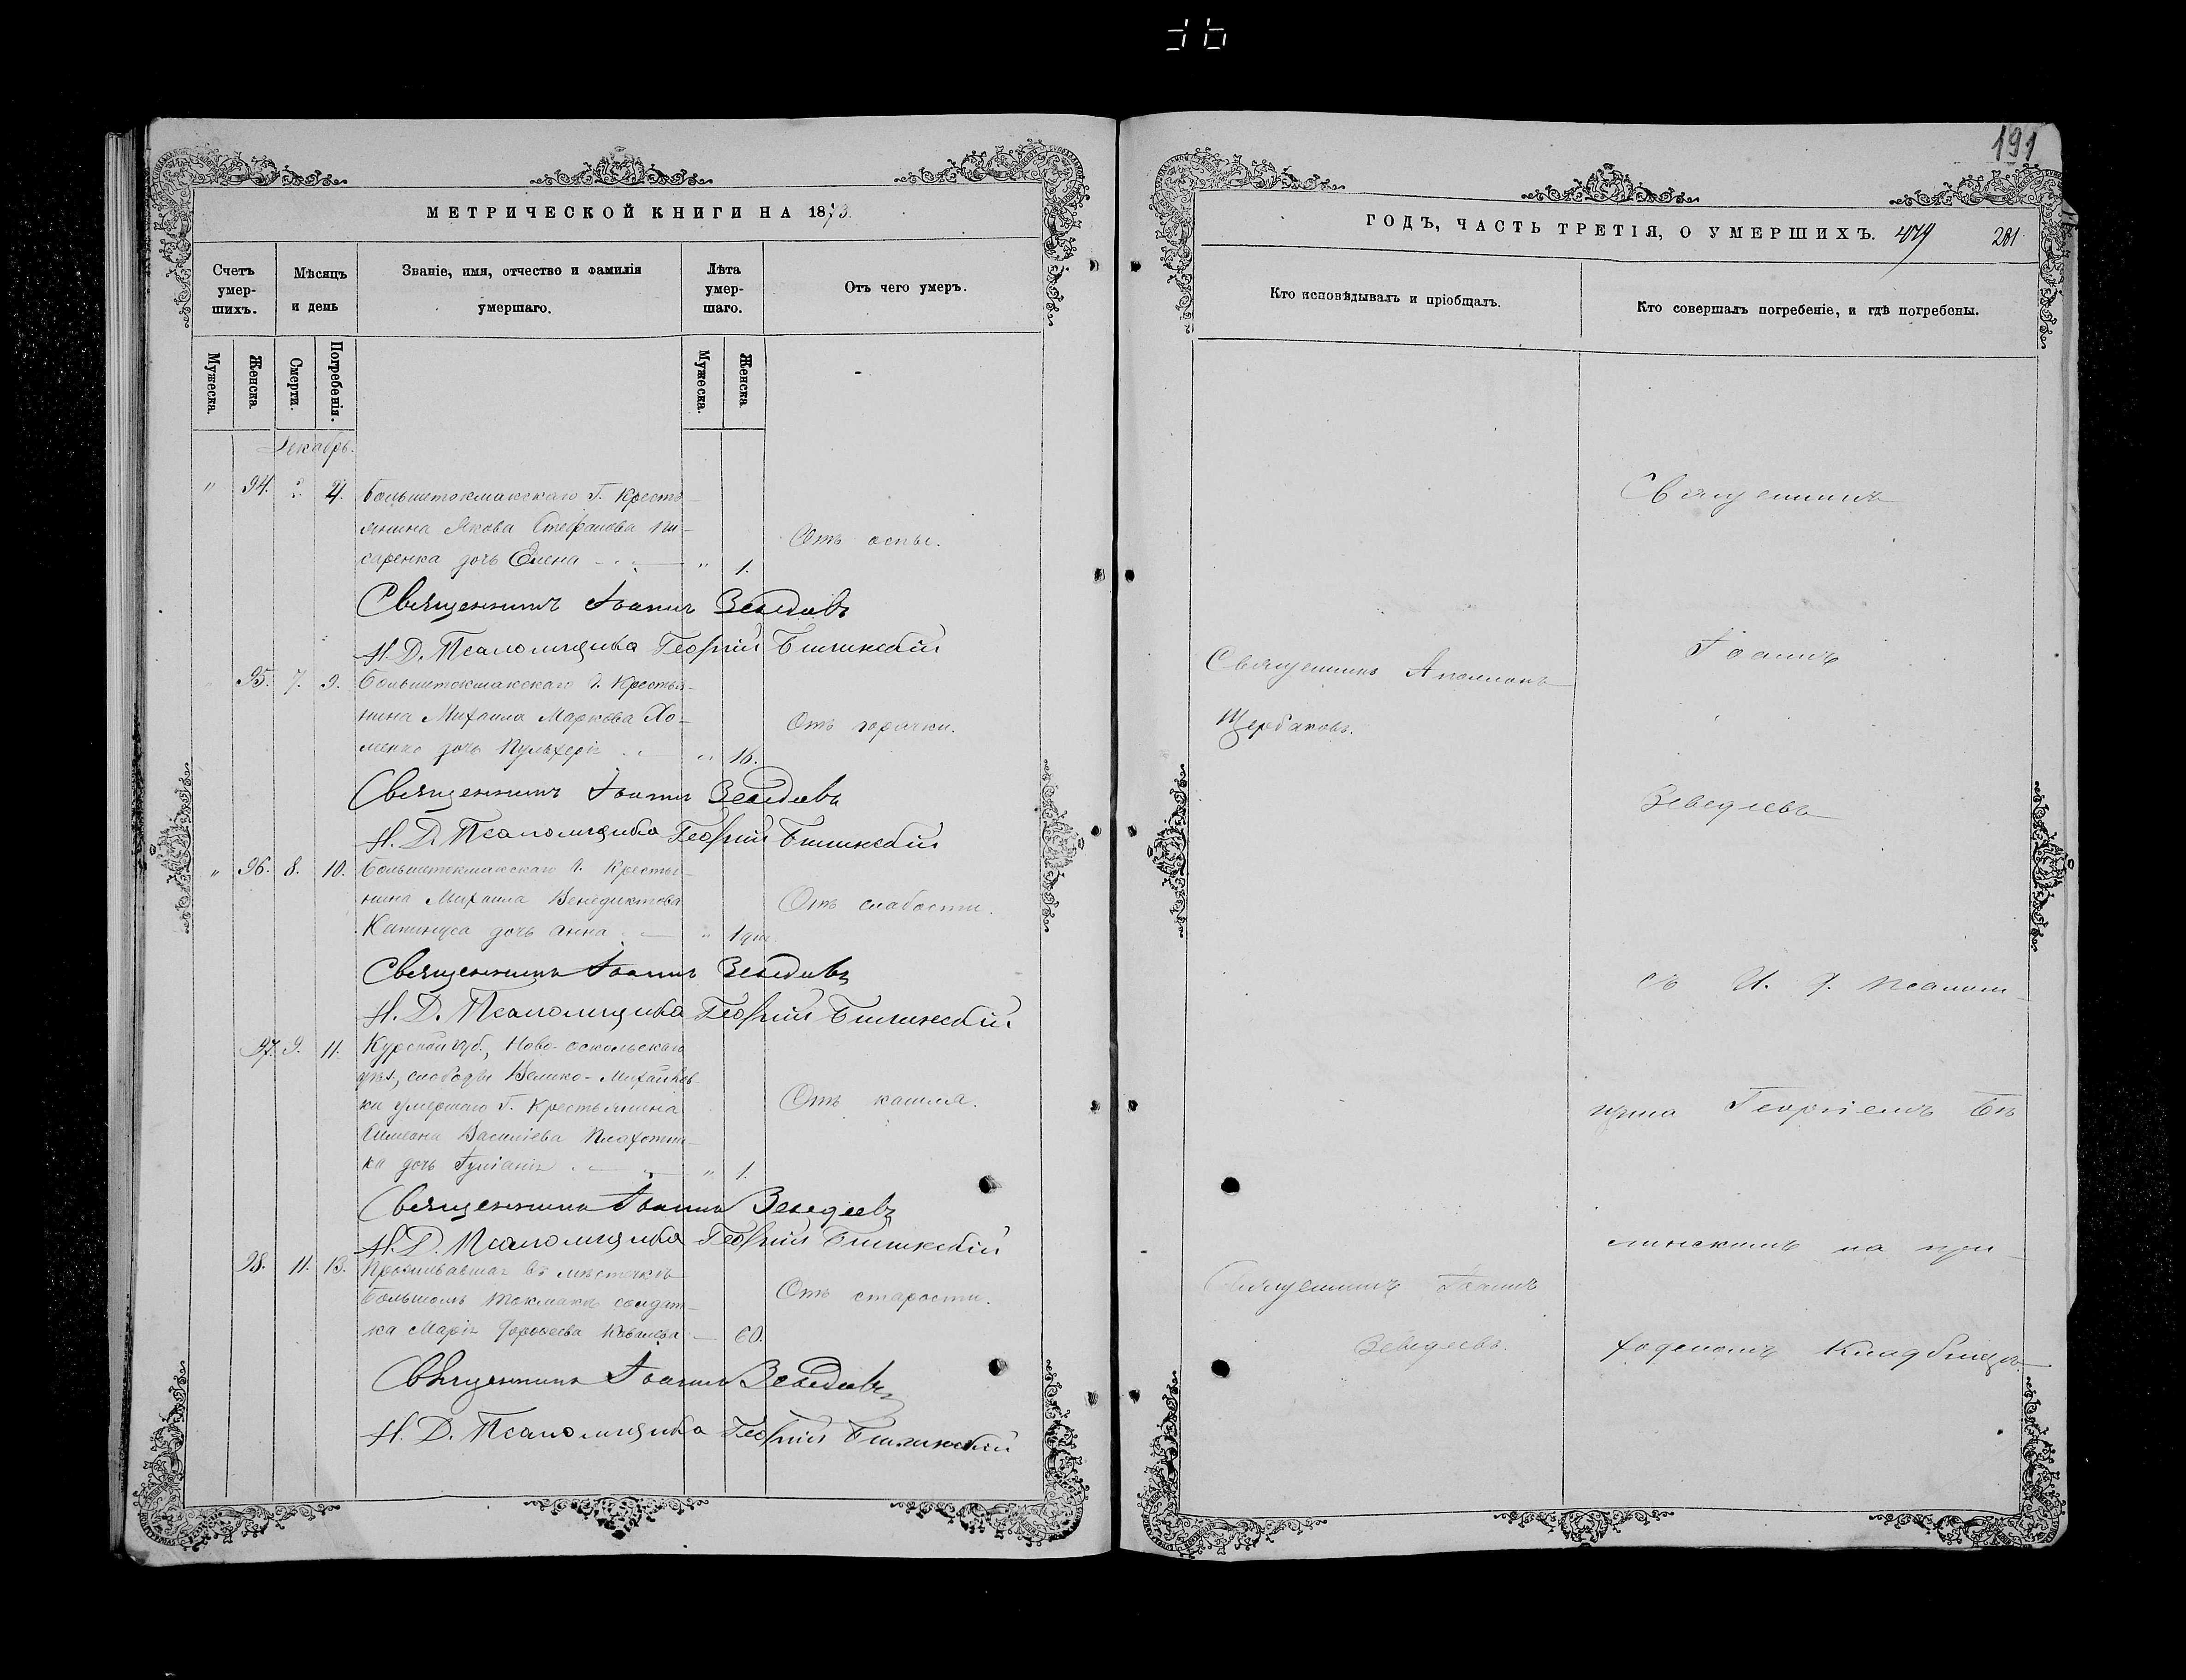 191
МЕТРИЧЕСКОЙ КНИГИ НА 1873.
Счетъ умер- шихъ.
Мѣсяцъ и день
Званіе, имя, отчество и фамилія умершаго.
Лѣта умер- шаго.
Отъ чего умеръ.
Мужеска.
Женска
Смерти.
Погребенія.
Мужеска.
Женска
Декабрь.
" 94. 4. Большетокмакскаго Г. Кресть-
янина Якова Стефанова Пи-
саренка дочь Елена " 1.
Отъ оспы.
Священникъ Іоаннъ Зеведеевъ
И. Д. Псаломщика Георгій Билинскій
95. 7. 9. Большетокмакскаго Г. Крестья-
нина Михаила Маркова Хо-
менко дочь Пульхерія " 16.
Отъ горячки.
Священникъ Іоаннъ Зеведеевъ
И. Д. Псаломщика Георгій Билинскій
" 96. 8. 10. Большетокмакскаго Г. Крестья-
нина Михаила Венедиктова
дочь Анна "
Отъ слабости.
Священникъ Іоаннъ Зеведеевъ
И. Д. Псаломщика Георгій Билинскій
97. 9. 11. Курской губ., Ново-Оскольскаго
уѣз., слободы Велико-Михайлов-
ки умершаго Г. Крестьянина
Симеона Василіева
ка дочь Іуліанія " 1.
Отъ кашля.
Священникъ Іоаннъ Зеведеевъ
И. Д. Псаломщика Георгій Билинскій
98. 11. 13. Проживавшая въ мѣстечкѣ
Большомъ Токмакѣ солдат-
ка Марія Ковалева 60.
Отъ старости.
Священникъ Іоаннъ Зеведеевъ
И. Д. Псаломщика Георгій Билинскій
ГОДЪ, ЧАСТЬ ТРЕТІЯ, О УМЕРШИХЪ. 479 201
Кто исповѣдывалъ и пріобщалъ.
Кто совершалъ погребеніе, и гдѣ погребены.
Священникъ Аполлонъ
Щербаковъ.
Священникъ Іоаннъ
Зеведеевъ.
Священникъ
Іоаннъ
Зеведеевъ
съ И. д. псаломщ-
щика Георгіемъ Би
линскимъ на при-
ходскомъ кладбищѣ